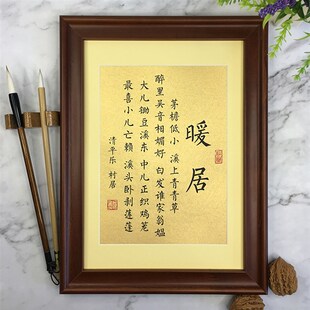 暖居
茅檐低小 溪上青青草
醉里吴音相媚好 白发谁家翁媪
大儿锄豆溪东 中儿正织鸡笼
最喜小儿亡赖 溪头卧剥莲蓬
清平乐 村居